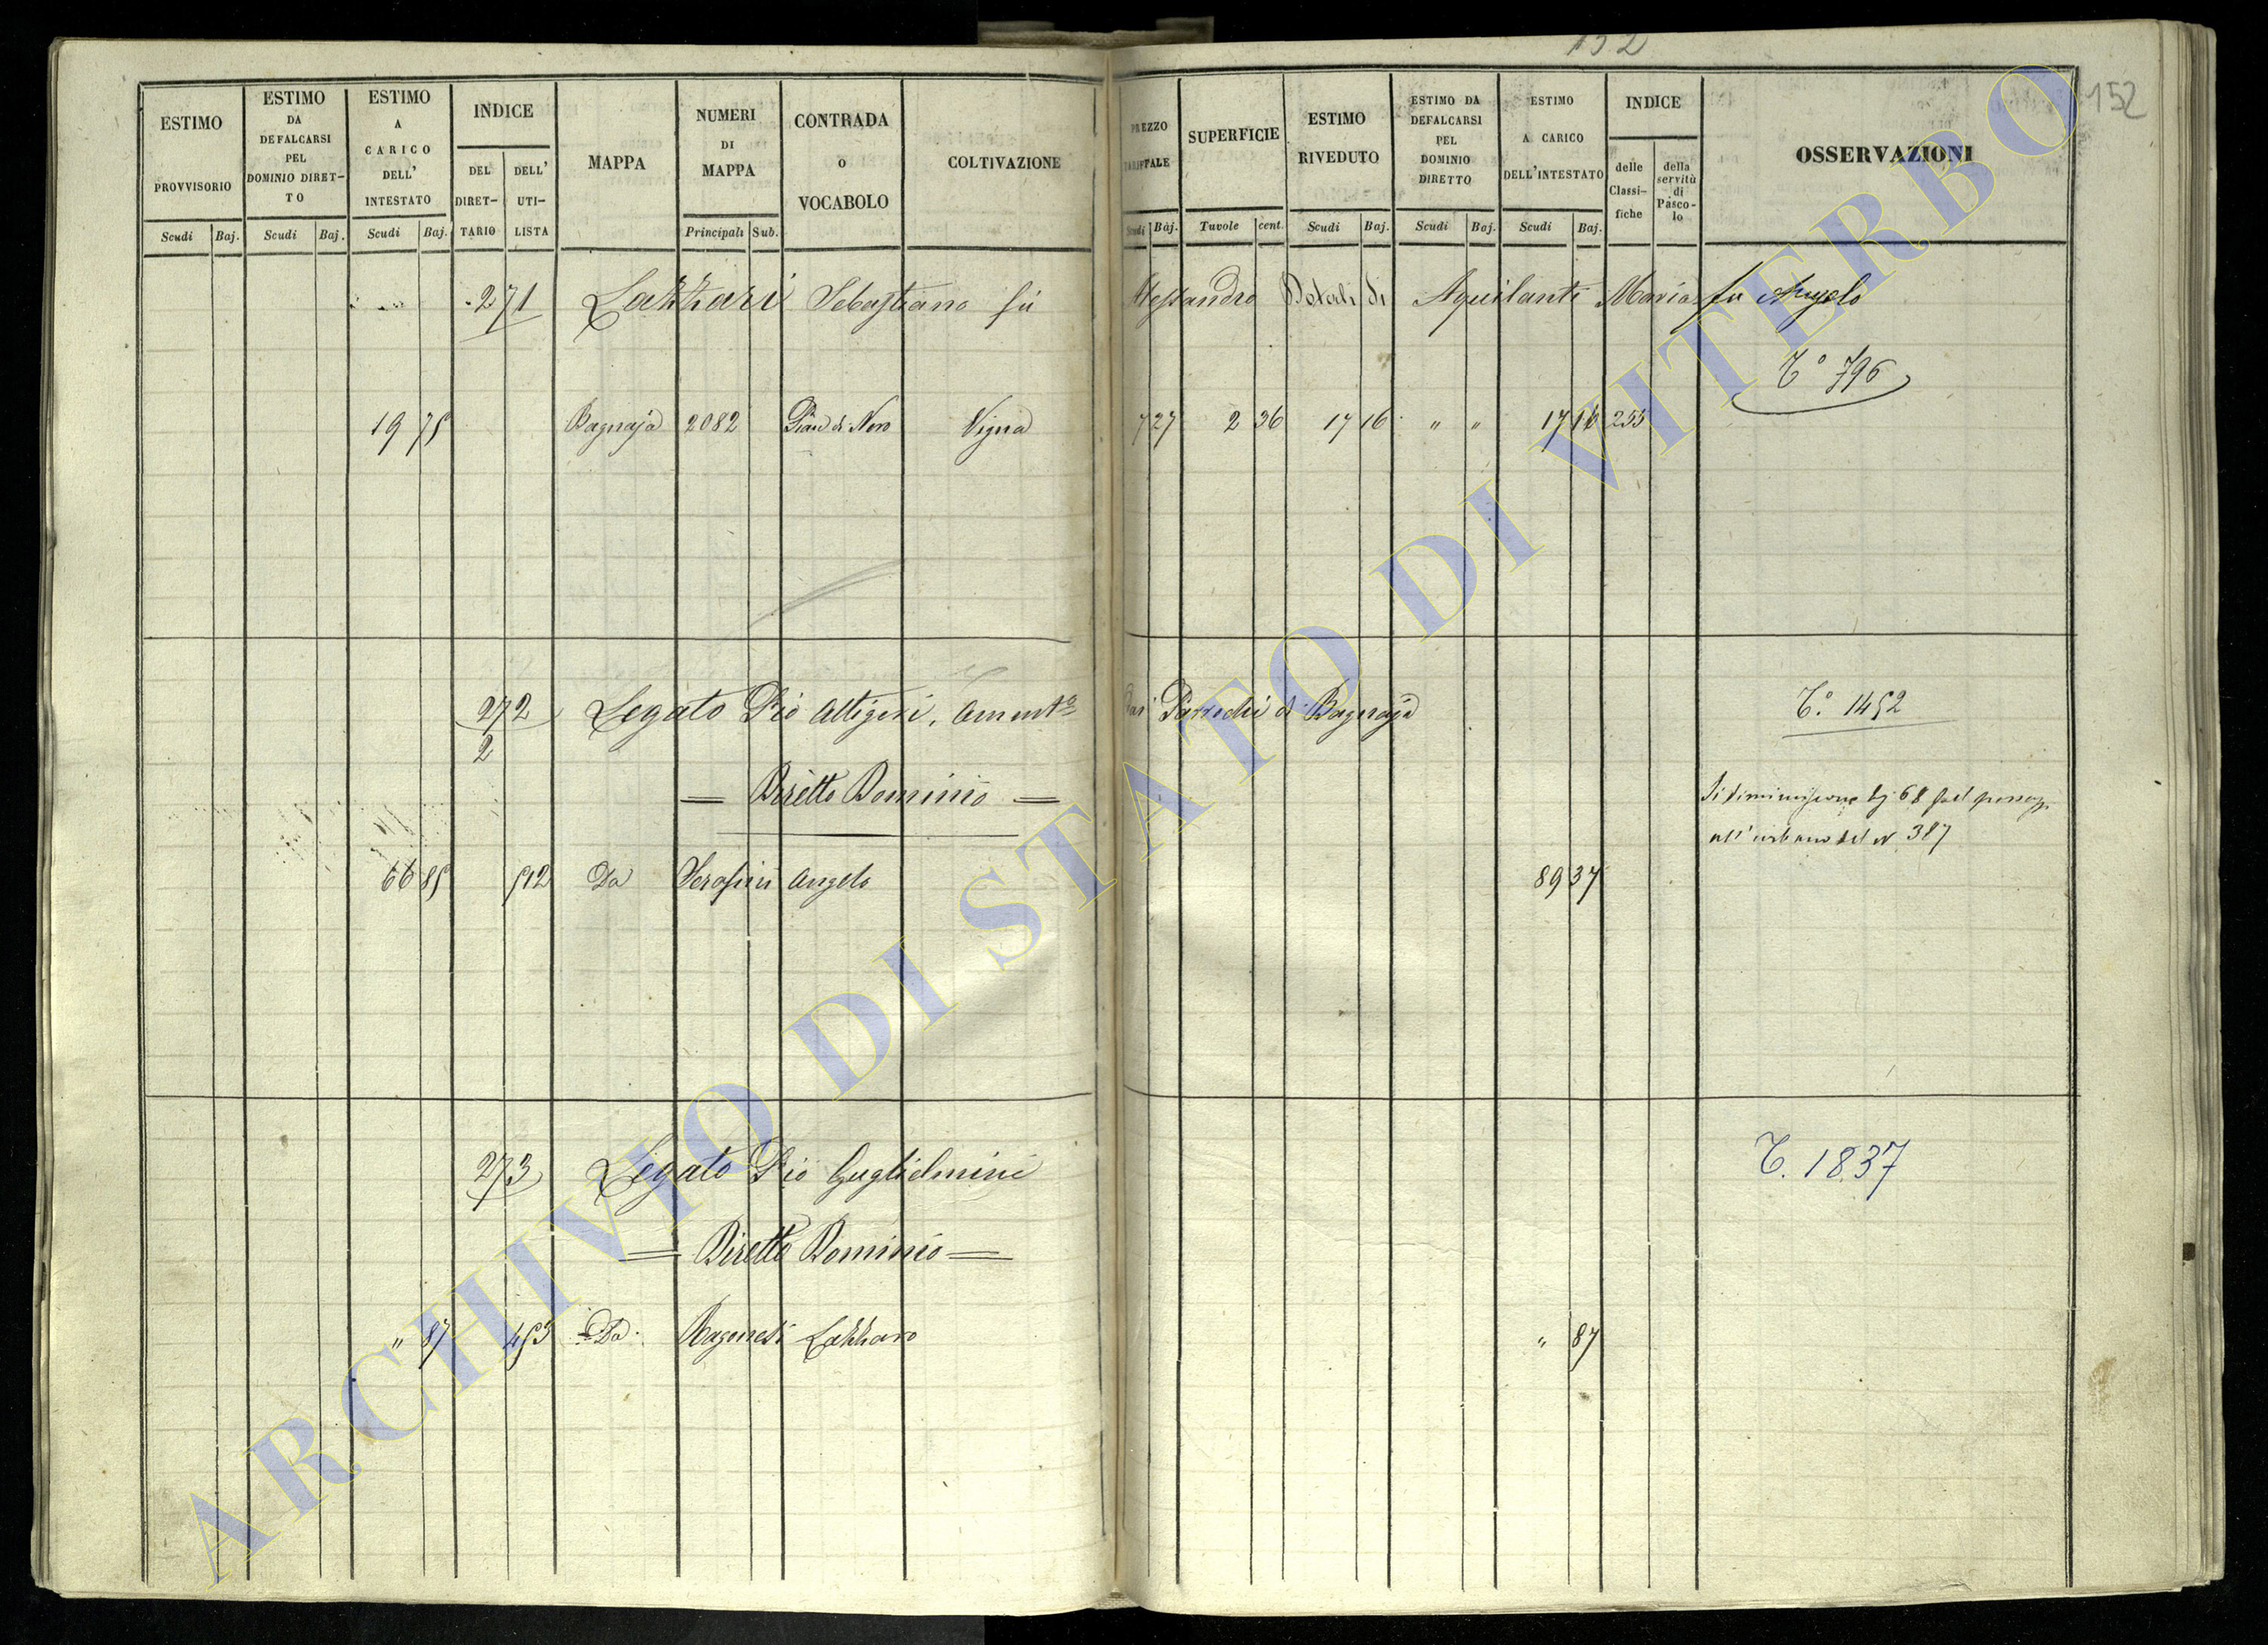 152
152
ESTIMO PROVVISORIO
ESTIMO DA DEFALCARSI PEL DOMINIO DIRET-TO
ESTIMO A CARICO DELL' INTESTATO
INDICE
DEL DIRET-TARIO
DELL' UTI-LISTA
MAPPA
NUMERI DI MAPPA
CONTRADA o VOCABOLO
COLTIVAZIONE
PREZZO TARIFFALE
SUPERFICIE
ESTIMO RIVEDUTO
ESTIMO DA DEFALCARSI PEL DOMINIO DIRETTO
ESTIMO A CARICO DELL'INTESTATO
INDICE
delle Classi-fiche
della servitù di Pasco-lo
OSSERVAZIONI
Scudi Baj. Scudi Baj. Scudi Baj. Principali Sub. Scudi Baj. Tavole cent. Scudi Baj. Scudi Baj. Scudi Baj.
271 Lazzari Sebastiano fu Alessandro Dotali di Aquilanti Maria fu Angelo
T° 796
19 75 Bagnaja 2082 Pian di Nero Vigna 7 27 2 36 17 16 " " 17 16 255
272 Legato Pio Altigeri, Ammta dai Parrochi di Bagnaja T° 1452
2
= Diretto Dominio =
Si diminuiscono bj 68 pel passag.
all'urbano del N 387
66 85 512 Da Serafini Angelo 89 37
273 Legato Pio Guglielmini T. 1837
= Diretto Dominio =
" 87 453 Da Ragonesi Lazzaro " 87
ARCHIVIO DI STATO DI VITERBO